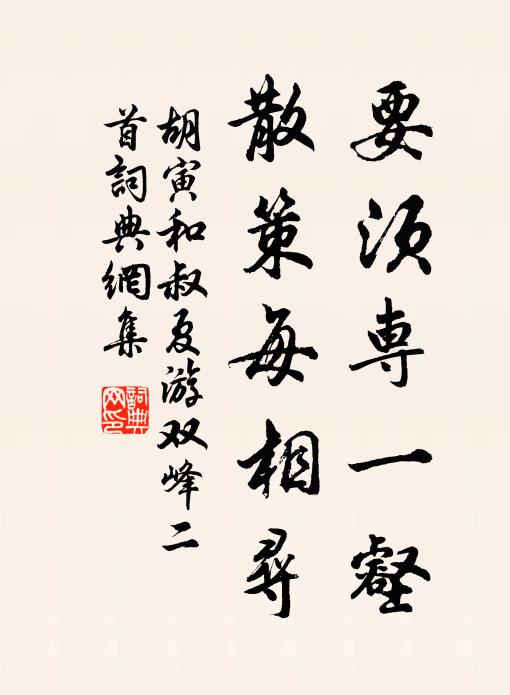 要須専一壑
散策每相尋
胡寅和叔夏游双峰二
首詞典網集
詞典
网印